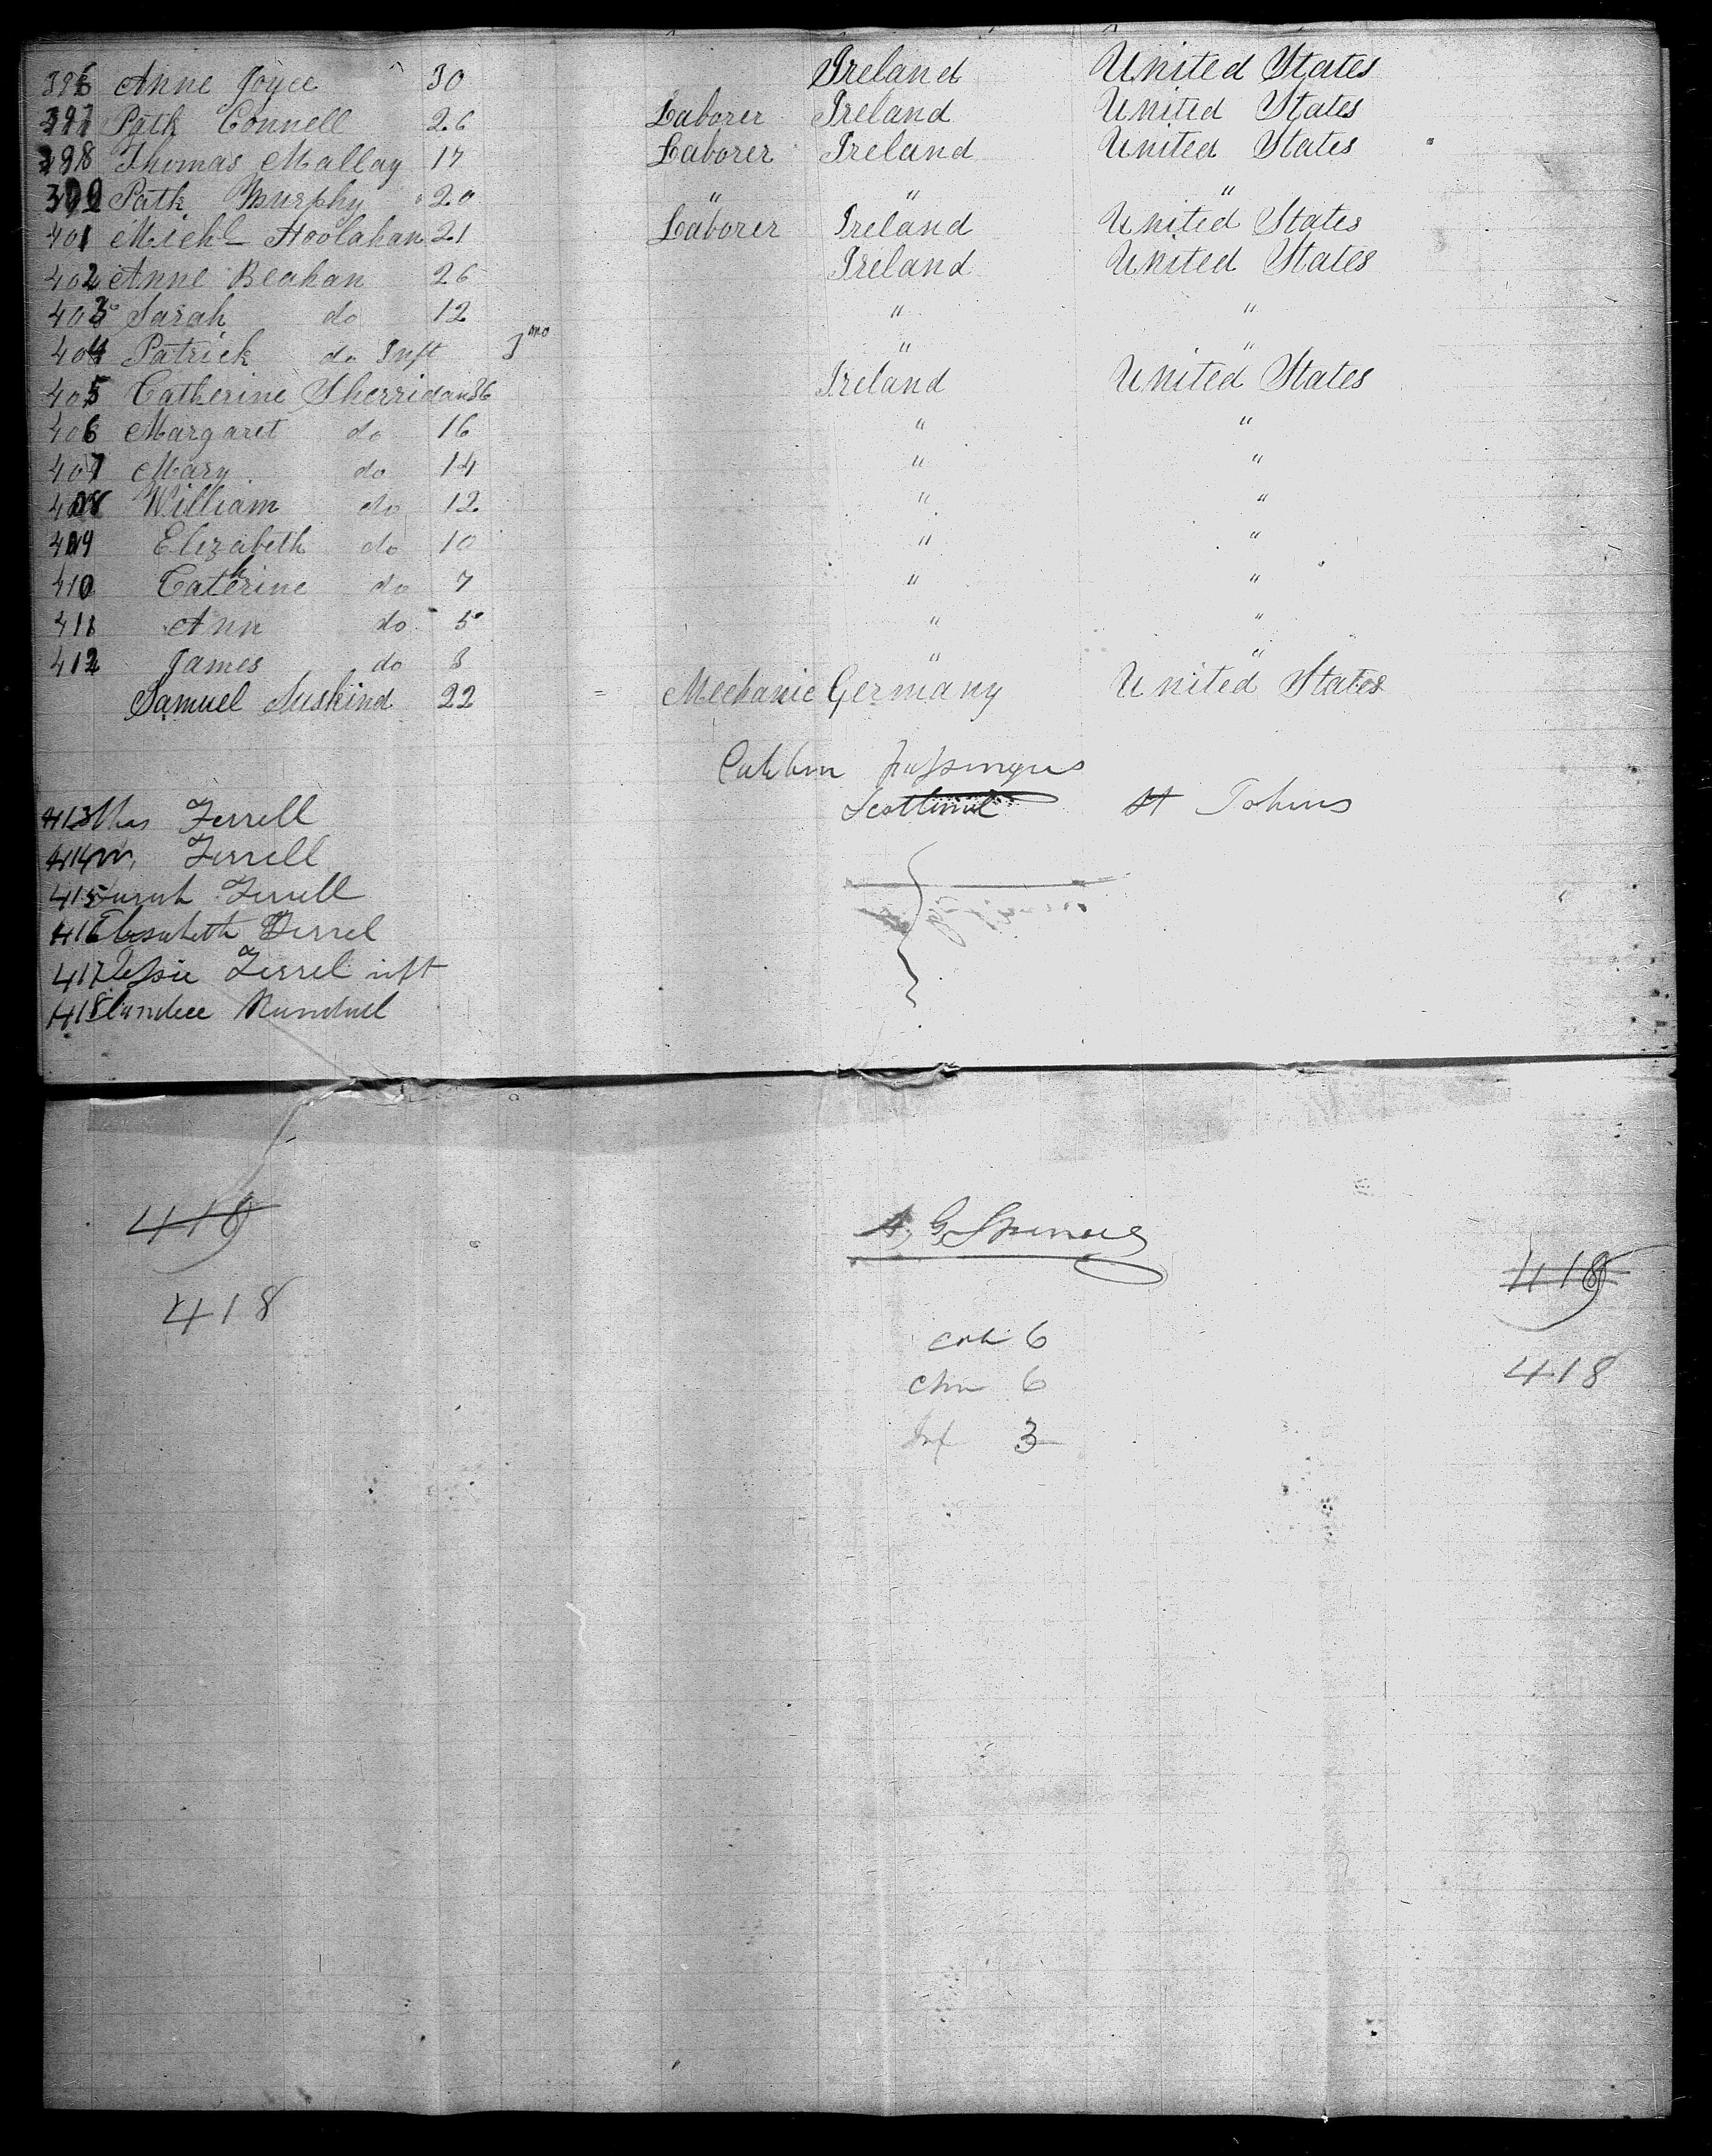 396 Anne Joyce 30 Ireland United States
397 Patk Connell 26 Laborer Ireland United States
398 Thomas Mallay 17 Laborer Ireland United States
399 Patk Murphy 20 " " "
401 Michl Hoolahan 21 Laborer Ireland United States
402 Anne Beahan 26 Ireland United States
403 Sarah do 12 " "
404 Patrick do Inft 3 mo " "
405 Catherine Sherridan 36 Ireland United States
406 Margaret do 16 " "
407 Mary do 14 " "
408 William do 12 " "
409 Elizabeth do 10 " "
410 Catherine do 7 " "
411 Ann do 5 " "
412 James do 3 " "
Samuel Suskind 22 Mechanic Germany United States
passengers
413 Ferrell Scotland St Johns
414 Ferrell
415 Sarah Ferrell
416 Elesabeth Ferrel
417 Jessie Ferrel inft
418
418 A. G. 418
418 418
6
chn 6
Inf 3